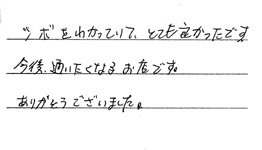 ツボをわかっていて、とても良かったです
今後、通いたくなるお店です。
ありがとうございました。